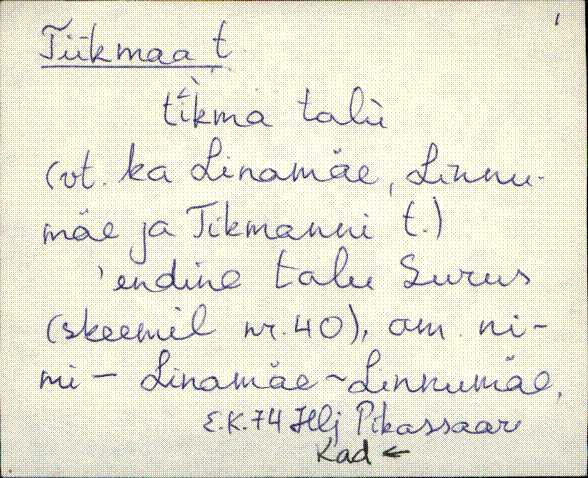 1
Tiikmaa t.
tìkma talu
(vt. ka Linamäe, Linnu-
mäe ja Tikmanni t.)
'endine talu Surus
(skeemil nr. 40), am. ni-
mi - Linamäe ~ Linnumäe.
E.K. 74 Hlj Pikassaar
Kad ←